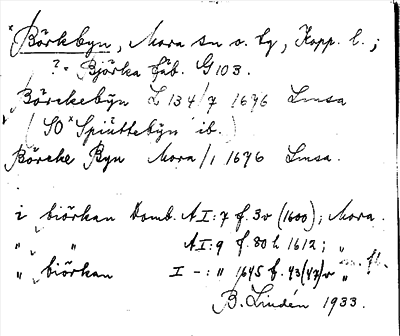 *Börkbyn, Mora sn o. tg, Kopp. l.;
?= Björka fäb. G103.
Börckebÿn L 134/7 1696 Lmsa
(SO *Spiuttebÿn ib.)
Börcke Byn Mora/1 1696 Lmsa.
i biörkan Domb. AI:7 f. 3v (1600); Mora.
" " " AI:9 f. 80 h 1612; "
" biörkan I -:" 1645 f. 43(47)v "
B. Lindén 1933.